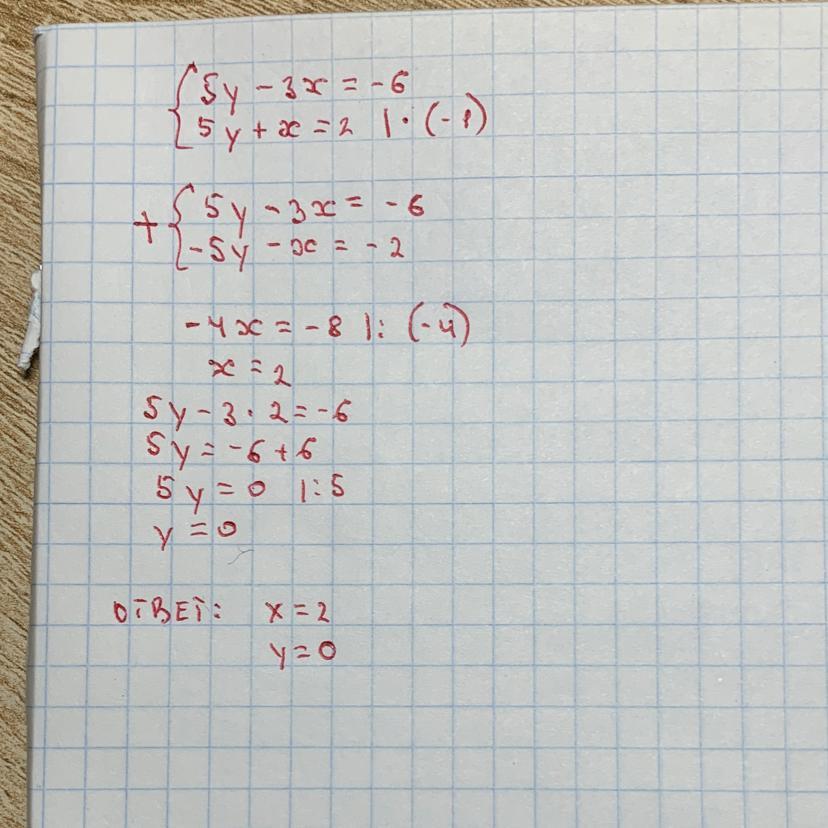 5y - 3x = -6
5y + x = 2 | · (-1)
+ 5y - 3x = -6
-5y - x = -2
-4x = -8 | : (-4)
x = 2
5y - 3 · 2 = -6
5y = -6 + 6
5y = 0 | : 5
y = 0
ОТВЕТ: x = 2
y = 0